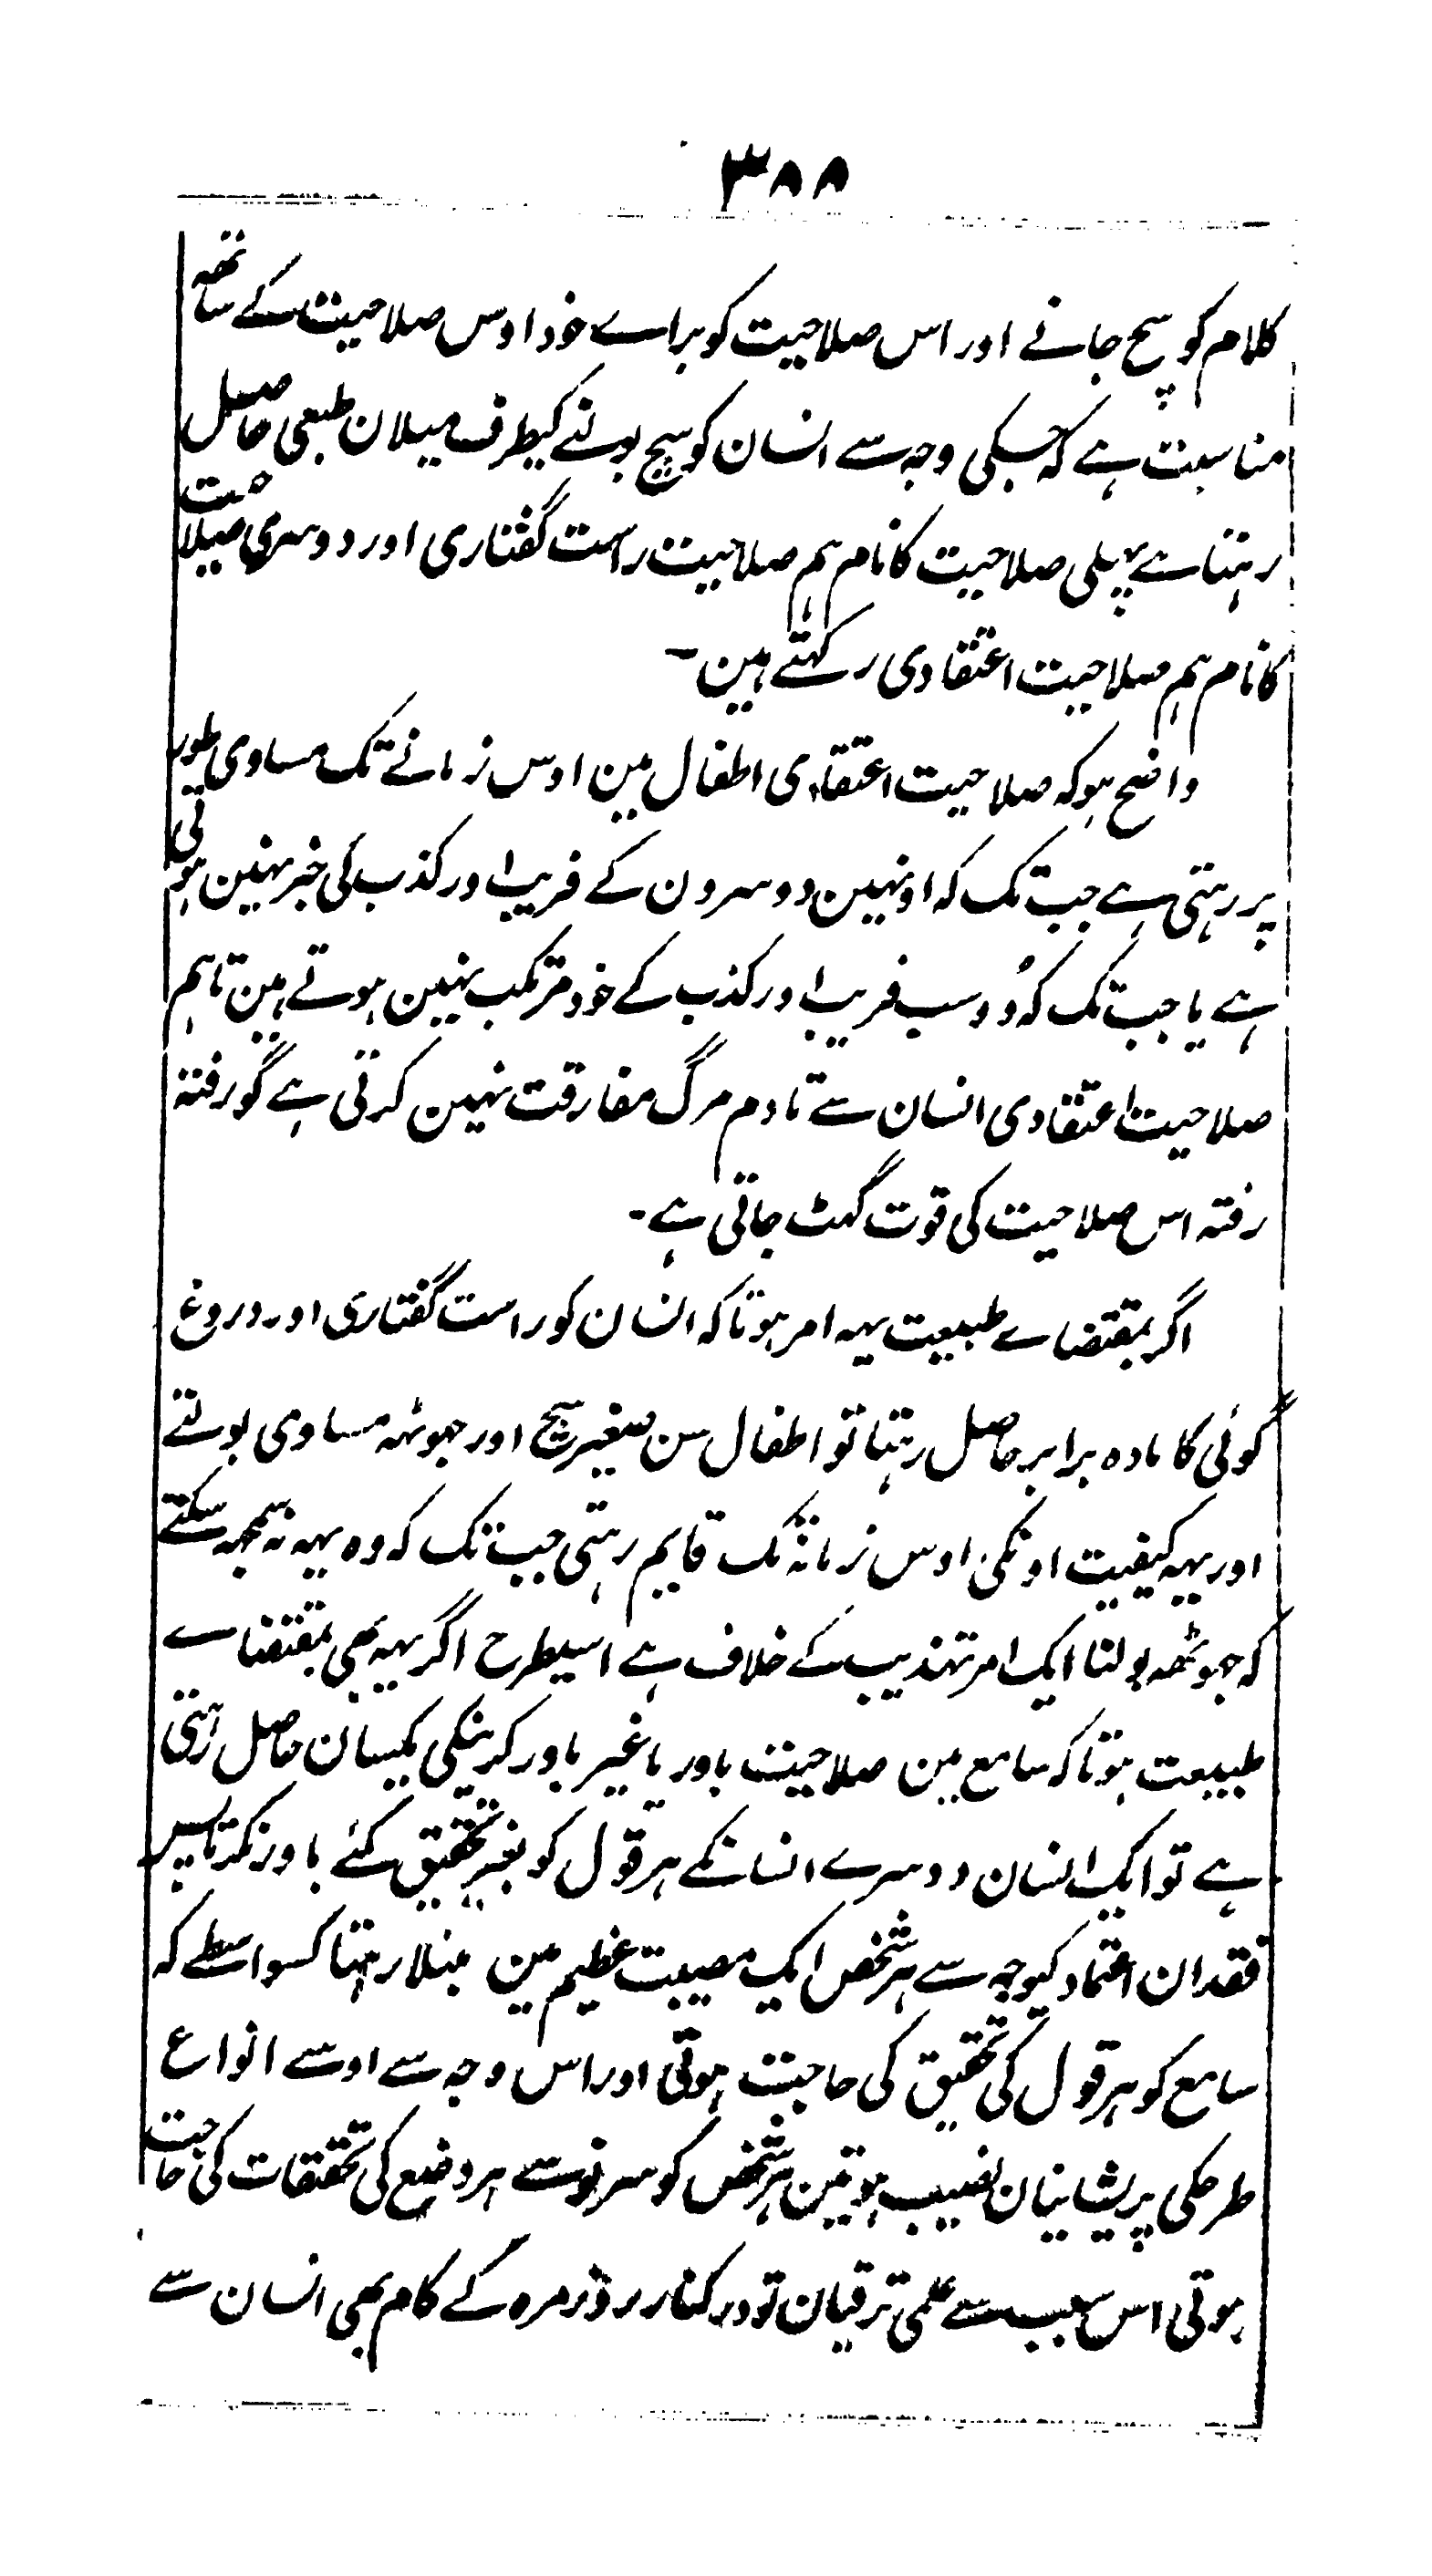 ۳۸۸
کلام کو سچ جانے اور اس صلاحیت کو براے خود اوس صلاحیت کے ساتھہ
مناسبت ہے کہ جسکی وجہ سے انسان کو سچ بولنے کیطرف میلان طبعی حاصل
رہتا ہے پہلی صلاحیت کا نام ہم صلاحیت راست گفتاری اور دوسری صلاحیت
کا نام ہم صلاحیت اعتقادی رکہتے ہین ۔
واضح ہو کہ صلاحیت اعتقادی اطفال مین اوس زمانے تک مساوی طور
پر رہتی ہے جب تک کہ اونہین دوسرون کے فریب اور کذب کی خبر نہین ہوتی
ہے یا جب تک کہ وُہ سب فریب اور کذب کے خود مرتکب نہین ہوتے ہین تاہم
صلاحیت اعتقادی انسان سے تادم مرگ مفارقت نہین کرتی ہے گو رفتہ
رفتہ اس صلاحیت کی قوت گہٹ جاتی ہے ۔
اگر بمقتضاے طبیعت یہہ امر ہوتا کہ انسان کو راست گفتاری اور دروغ
گوئی کا مادہ برابر حاصل رہتا تو اطفال سن صغیر سچ اور جھوٹہہ مساوی بولتے
اور یہہ کیفیت اونکی اوس زمانہ تک قایم رہتی جب تک کہ وہ یہہ نہ سمجہہ سکتے
کہ جھوٹھہ بولنا ایک امر تہذیب کے خلاف ہے اسیطرح اگر یہہ بھی بمقتضاے
طبیعت ہوتا کہ سامع مین صلاحیت باور یا غیر باور کرنیکی یکسان حاصل رہتی
ہے تو ایک انسان دوسرے انسانکے ہر قول کو بغیر تحقیق کئے باور نکرتا پس
فقدان اعتماد کیوجہ سے ہر شخص ایک مصیبت عظیم مین مبتلا رہتا کسواسطے کہ
سامع کو ہر قول کی تحقیق کی حاجت ہوتی اور اس وجہ سے اوسے انواع
طرحکی پریشانیان نصیب ہوتین ہر شخص کو سر نو سے ہر وضع کی تحقیقات کی حاجت
ہوتی اس سبب سے علمی ترقیان تو درکنار روزمرہ کے کام بھی انسان سے